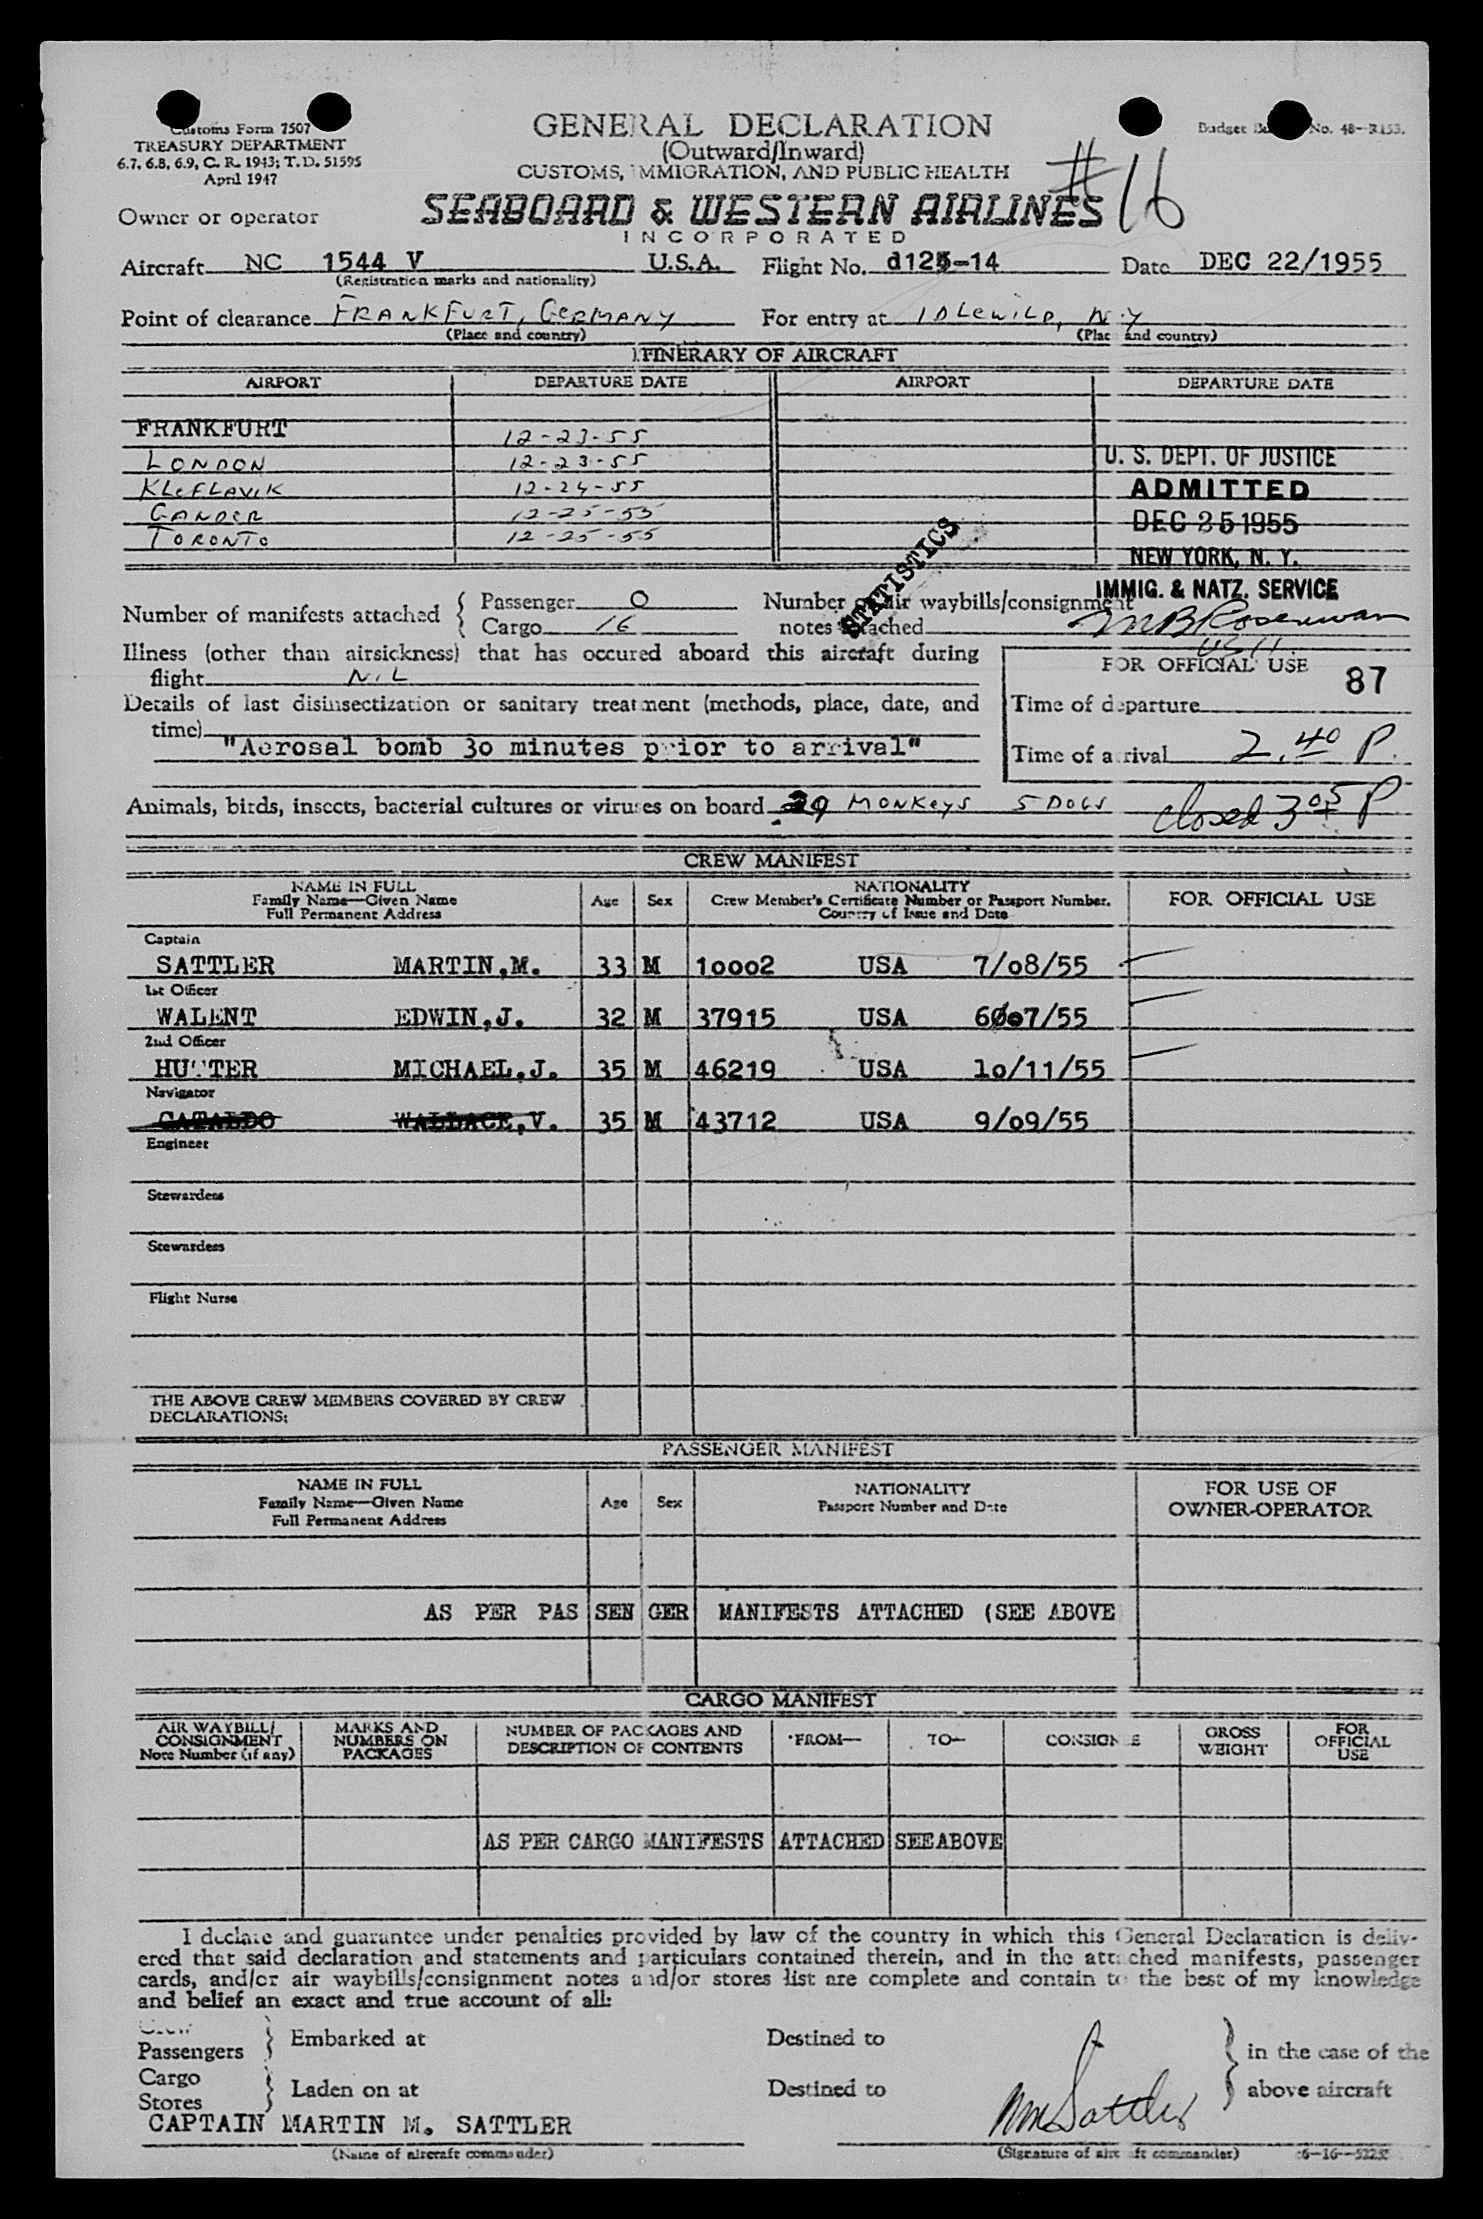 Customs Form 7507
TREASURY DEPARTMENT
6.7, 6.8, 6.9, C. R. 1943; T. D. 51595
April 1947
GENERAL DECLARATION
(Outward/Inward)
CUSTOMS, IMMIGRATION, AND PUBLIC HEALTH
Budget No. 48-R153.
#16
Owner or operator
SEABOARD & WESTERN AIRLINES
INCORPORATED
Aircraft NC 1544 V U.S.A. Flight No. d125-14 Date DEC 22/1955
(Registration marks and nationality)
Point of clearance FRANKFURT, GERMANY For entry at IDLEWILD, N.Y
(Place and country) (Place and country)
ITINERARY OF AIRCRAFT
AIRPORT DEPARTURE DATE AIRPORT DEPARTURE DATE
FRANKFURT 12-23-55
LONDON 12-23-55
KLEFLAVIK 12-24-55
GANDER 12-25-55
TORONTO 12-25-55
U. S. DEPT. OF JUSTICE
ADMITTED
DEC 25 1955
NEW YORK, N. Y.
IMMIG. & NATZ. SERVICE
STATISTICS
Number of manifests attached { Passenger 0
Cargo 16
Number of air waybills/consignment
notes attached
Illness (other than airsickness) that has occured aboard this aircraft during
flight NIL
FOR OFFICIAL USE
87
Details of last disinsectization or sanitary treatment (methods, place, date, and
time)
"Aerosal bomb 30 minutes prior to arrival"
Time of departure
Time of arrival 2.40 P.
Animals, birds, insects, bacterial cultures or viruses on board 39 MONKEYS 5 DOGS
closed 3 05 P
CREW MANIFEST
NAME IN FULL
Family Name—Given Name
Full Permanent Address
Age Sex
NATIONALITY
Crew Member's Certificate Number or Passport Number.
Country of Issue and Date
FOR OFFICIAL USE
Captain
SATTLER MARTIN,M. 33 M 10002 USA 7/08/55
1st Officer
WALENT EDWIN,J. 32 M 37915 USA 6007/55
2nd Officer
HUTTER MICHAEL,J. 35 M 46219 USA 10/11/55
Navigator
CATALDO WALLACE,V. 35 M 43712 USA 9/09/55
Engineer
Stewardess
Stewardess
Flight Nurse
THE ABOVE CREW MEMBERS COVERED BY CREW
DECLARATIONS:
PASSENGER MANIFEST
NAME IN FULL
Family Name—Given Name
Full Permanent Address
Age Sex
NATIONALITY
Passport Number and Date
FOR USE OF
OWNER-OPERATOR
AS PER PAS SEN GER MANIFESTS ATTACHED (SEE ABOVE
CARGO MANIFEST
AIR WAYBILL/
CONSIGNMENT
Note Number (if any)
MARKS AND
NUMBERS ON
PACKAGES
NUMBER OF PACKAGES AND
DESCRIPTION OF CONTENTS
FROM—
TO—
CONSIGNEE
GROSS
WEIGHT
FOR
OFFICIAL
USE
AS PER CARGO MANIFESTS ATTACHED SEE ABOVE
I declare and guarantee under penalties provided by law of the country in which this General Declaration is deliv-
ered that said declaration and statements and particulars contained therein, and in the attached manifests, passenger
cards, and/or air waybills/consignment notes and/or stores list are complete and contain to the best of my knowledge
and belief an exact and true account of all:
Crew
Passengers } Embarked at Destined to
Cargo
Stores } Laden on at Destined to
} in the case of the
above aircraft
CAPTAIN MARTIN M. SATTLER
MM Sattler
(Name of aircraft commander) (Signature of aircraft commander)